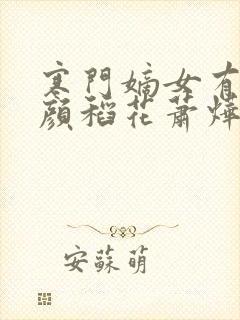 寒門嫡女有
顏稻花蕭燁
安蘇萌